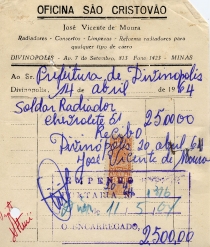 OFICINA SÃO CRISTOVÃO
José Vicente de Moura
Radiadores - Concertos - Limpezas - Reforma radiadores para
qualquer tipo de carro
DIVINOPOLIS - Av. 7 de Setembro, Fone 1423 - MINAS
Ao Sr. Prefeitura de Divinopolis
Divinopolis, 14 de abril de 1964
Soldar Radiador
chevrolete 61 2.500,00
Recibo
Divinópolis 20 abril 64
José Vicente de Moura
EMPENHO
11 5 64
O ENCARREGADO,
2.500,00